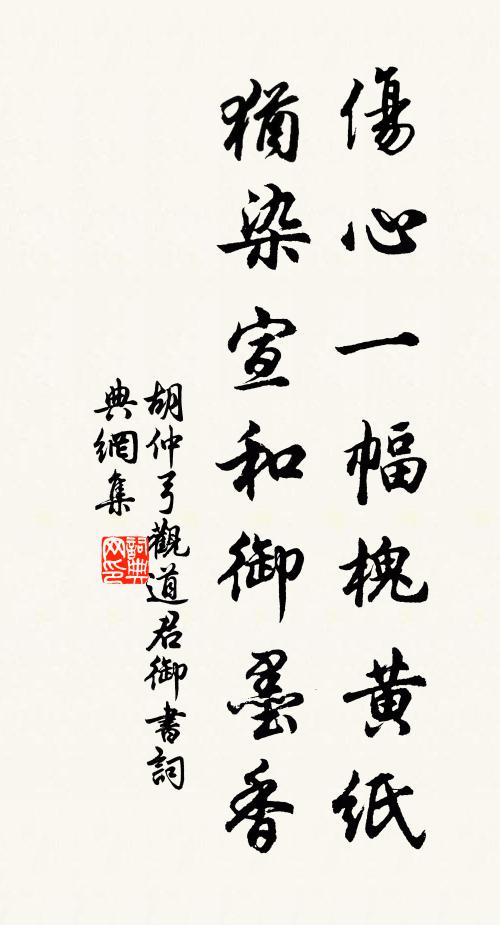 傷心一幅槐黃紙
猶染宣和御墨香
胡仲弓觀道君御書詞
典網集
詞典網印